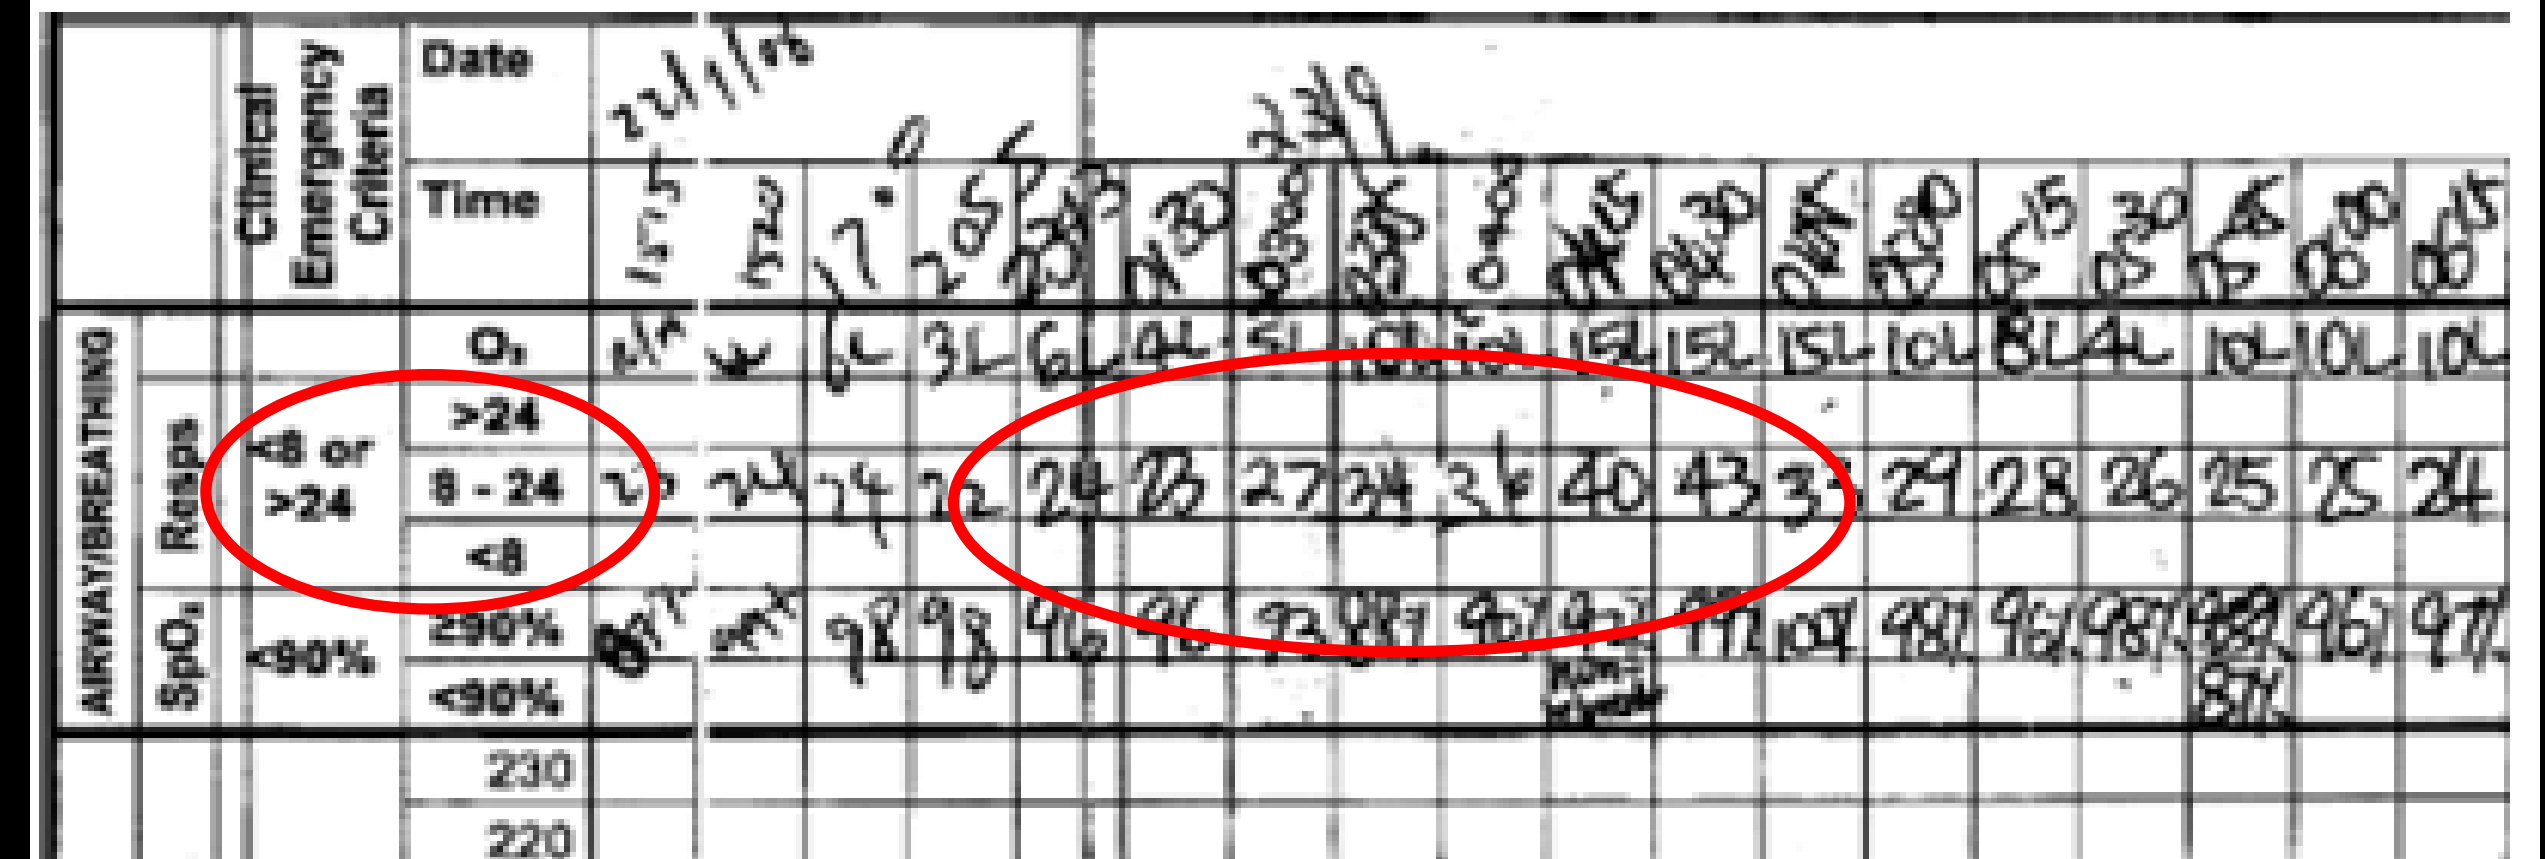 Clinical Emergency Criteria
Date 22/1/08 23/9
Time 1520 2055 0130 0300 0400 0415 0430 0445 0500 0515 0530 0600 0615
AIRWAY/BREATHING
O₂ 6L 3L 6L 4L 5L 10L 10L 15L 15L 15L 10L 8L 4L 10L 10L 10L
Resps
<8 or >24
>24
8 - 24 23 24 24 22 24 23 27 34 36 40 43 29 28 26 25 25 24
<8
SpO₂
<90%
≥90% 98 98 96 96 93 88% 96% 99% 100% 98% 96% 98% 96% 97%
<90% 87%
230
220